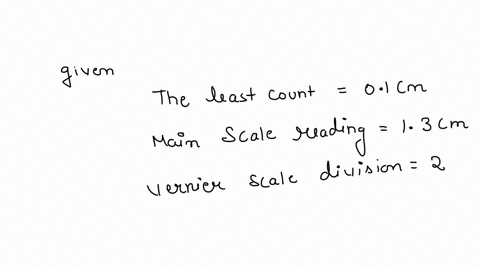 given
The least count = 0.1 cm
Main Scale reading = 1.3 cm
Vernier scale division = 2